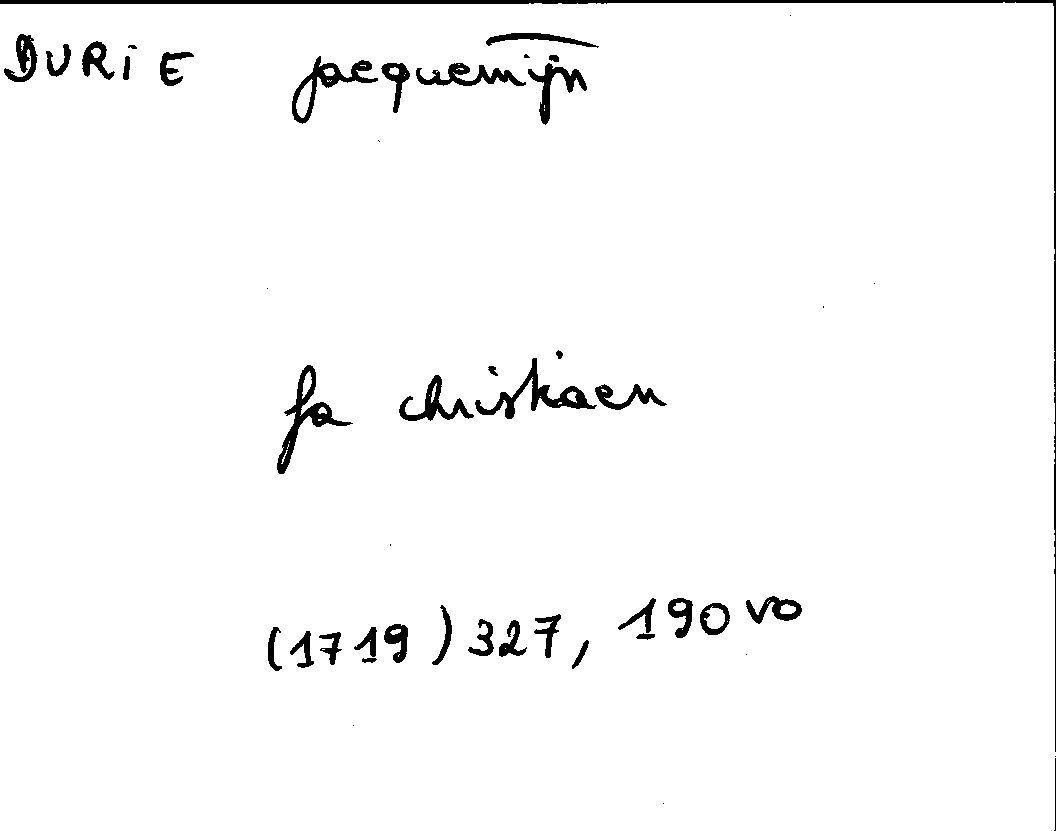 DURIE jacquemijn
fa christiaen
(1719) 327, 190 vo